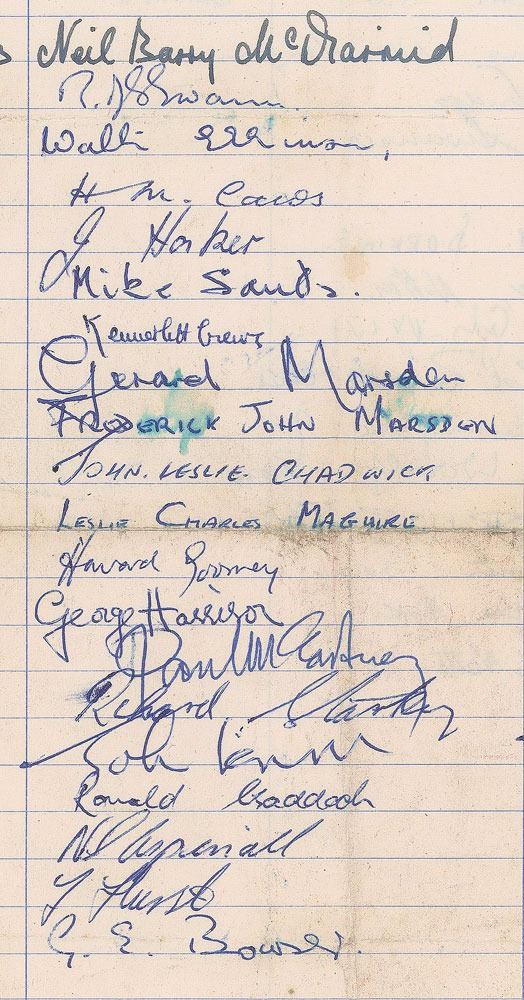 Neil Barry McDiarmid
R. Swann.
Walli
H M. Caws
J Harker
Mike Sands.
Kenneth Crews
Gerard Marsden
FREDERICK JOHN MARSDEN
JOHN. LESLIE. CHADWICK
LESLIE CHARLES MAGUIRE
Howard
George Harrison
Paul McCartney
Richard Starkey
John Lennon
Ronald
N Aspinall
Hurst
G. E. Bowser.